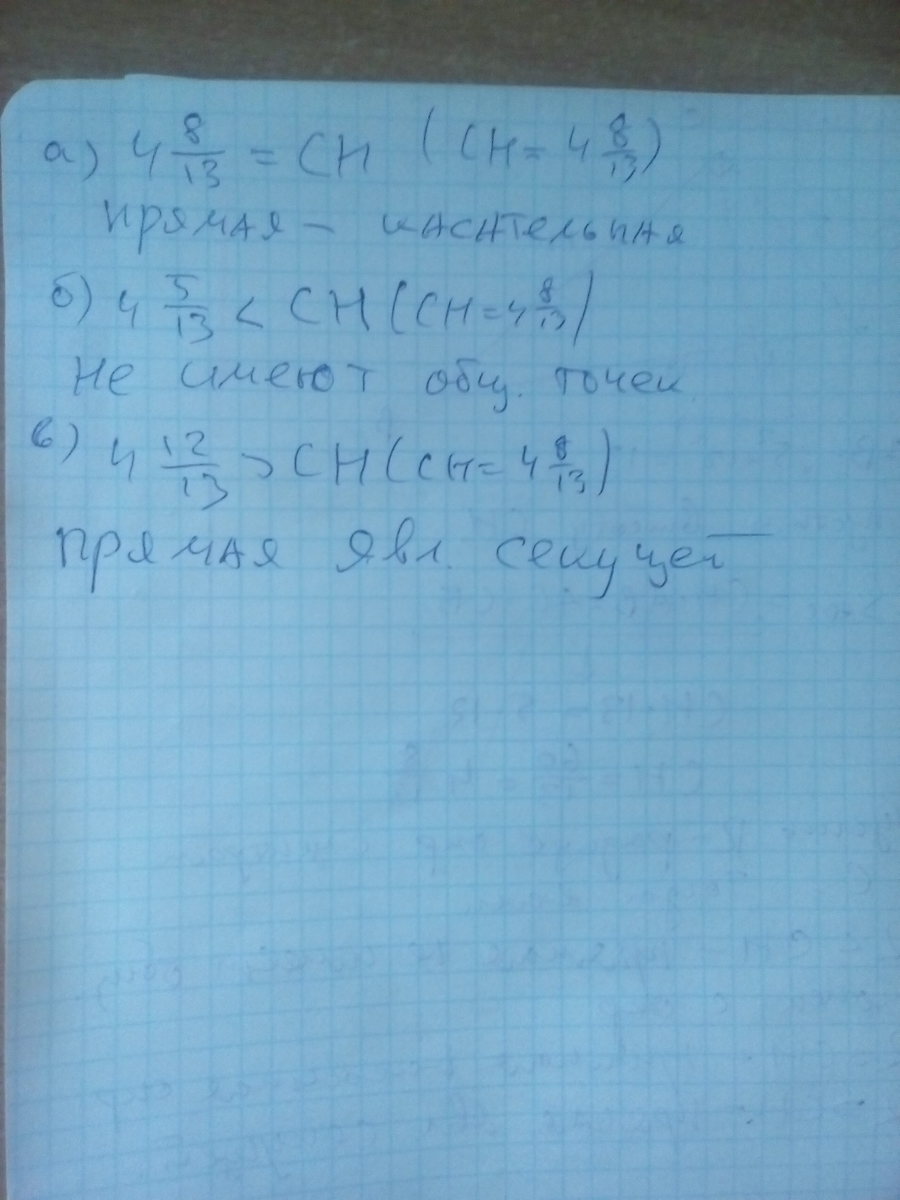 а) 4 8/13 = СН ( СН = 4 8/13)
прямая – касательная
б) 4 5/13 < СН (СН = 4 8/13)
не имеют общ. точек
в) 4 12/13 > СН (СН = 4 8/13)
прямая явл. секущей